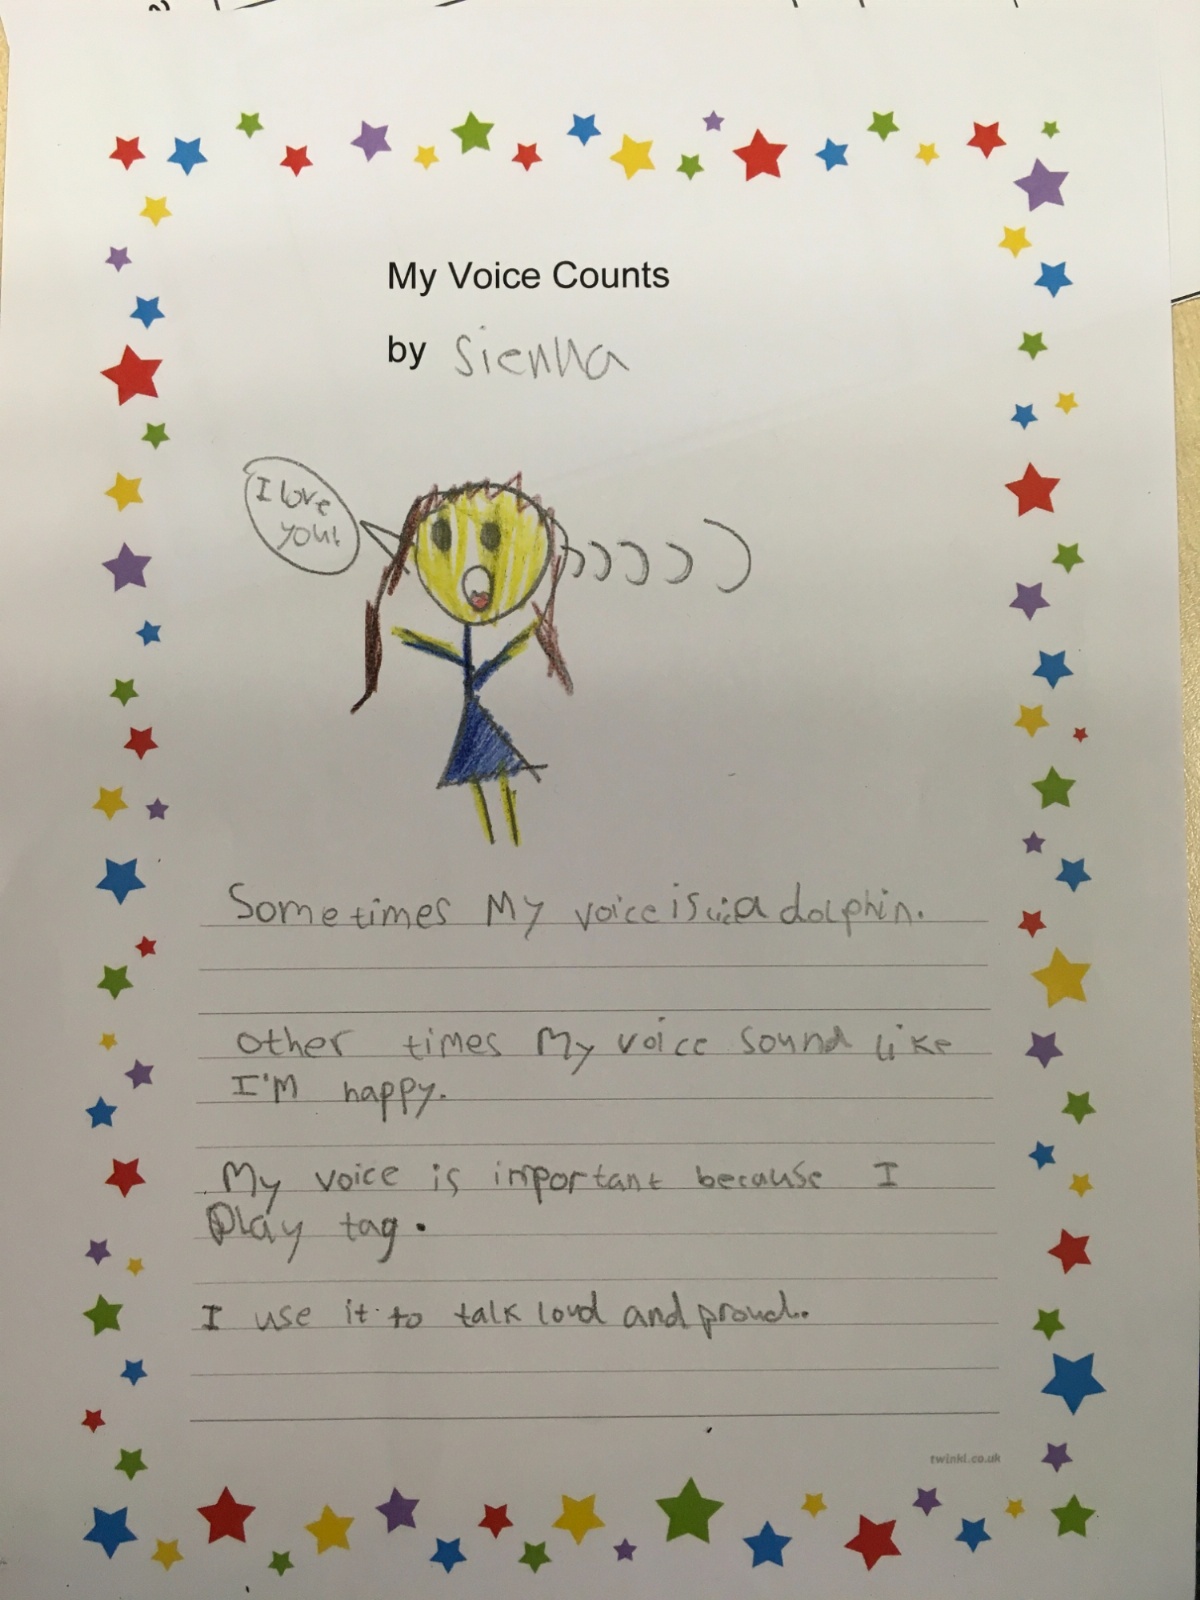 My Voice Counts
by Sienna
I love
you!
Sometimes My voice is a dolphin.
other times My voice sound like
I'M happy.
My voice is important because I
Play tag.
I use it to talk loud and proud.
twinkl.co.uk